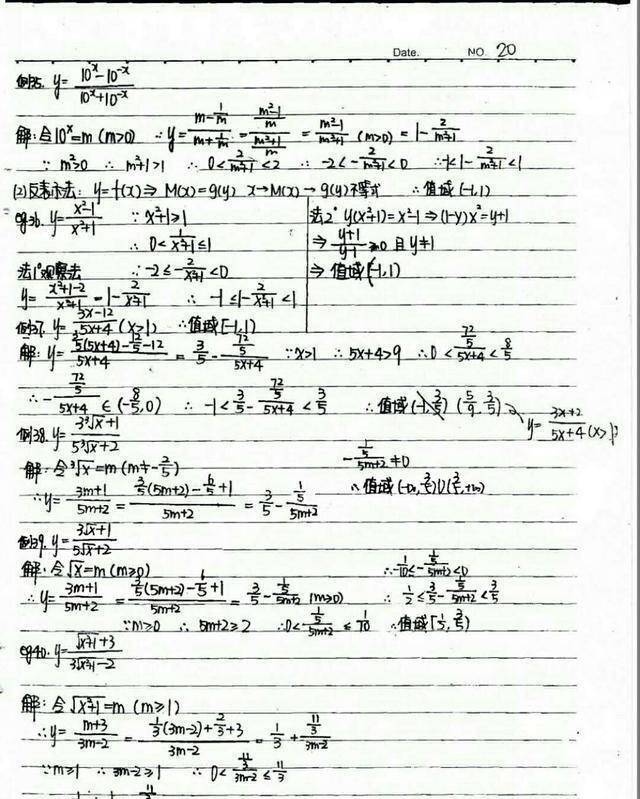 Date. NO. 20
例35. y = (10^x - 10^-x)/(10^x + 10^-x)
解: 令10^x = m (m>0) ∴ y = (m - 1/m)/(m + 1/m) = ((m²-1)/m)/((m²+1)/m) = (m²-1)/(m²+1) (m>0) = 1 - 2/(m²+1)
∵ m²>0 ∴ m²+1>1 ∴ 0 < 2/(m²+1) < 2 ∴ -2 < -2/(m²+1) < 0 ∴ -1 < 1 - 2/(m²+1) < 1
(2) 反表示法: y = f(x) ⇒ M(x) = g(y) x → M(x) → g(y)不等式 ∴ 值域(-1,1)
eg36. y = (x²-1)/(x²+1) ∵ x²+1≥1
∴ 0 < 1/(x²+1) ≤ 1
法1° 观察法 ∴ -2 ≤ -2/(x²+1) < 0
y = (x²+1-2)/(x²+1) = 1 - 2/(x²+1) ∴ -1 ≤ 1 - 2/(x²+1) < 1
∴ 值域[-1,1)
法2° y(x²+1) = x²-1 ⇒ (1-y)x² = y+1
⇒ (y+1)/(y-1) ≤0 且 y≠1
⇒ 值域[-1,1)
例37. y = (3x-12)/(5x+4) (x>1)
解: y = (3/5(5x+4) - 12/5 - 12)/(5x+4) = 3/5 - (72/5)/(5x+4) ∵ x>1 ∴ 5x+4>9 ∴ 0 < (72/5)/(5x+4) < 8/5
∴ -(72/5)/(5x+4) ∈ (-8/5, 0) ∴ -1 < 3/5 - (72/5)/(5x+4) < 3/5 ∴ 值域(-1, 3/5) (5/9, 3/5) → y = (3x+2)/(5x+4) (x>1)
例38. y = (3∛x+1)/(5∛x+2)
解: 令∛x = m (m≠-2/5) -(1/5)/(5m+2) ≠ 0
∴ y = (3m+1)/(5m+2) = (3/5(5m+2) - 6/5 + 1)/(5m+2) = 3/5 - (1/5)/(5m+2) ∴ 值域(-∞, 3/5)∪(3/5, +∞)
例39. y = (3√x+1)/(5√x+2)
解: 令√x = m (m≥0) ∴ -1/10 ≤ -(1/5)/(5m+2) < 0
∴ y = (3m+1)/(5m+2) = (3/5(5m+2) - 6/5 + 1)/(5m+2) = 3/5 - (1/5)/(5m+2) (m≥0) ∴ 1/2 ≤ 3/5 - (1/5)/(5m+2) < 3/5
∵ m≥0 ∴ 5m+2≥2 ∴ 0 < (1/5)/(5m+2) ≤ 1/10 ∴ 值域[1/2, 3/5)
eg40. y = (√(x²+1)+3)/(3√(x²+1)-2)
解: 令√(x²+1) = m (m≥1)
∴ y = (m+3)/(3m-2) = (1/3(3m-2) + 2/3 + 3)/(3m-2) = 1/3 + (11/3)/(3m-2)
∵ m≥1 ∴ 3m-2≥1 ∴ 0 < (11/3)/(3m-2) ≤ 11/3